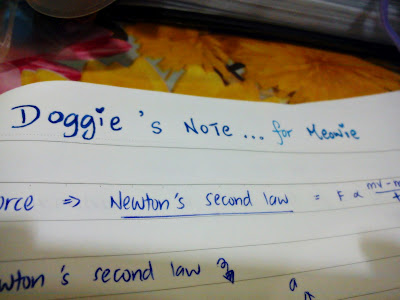 Doggie's Note... for Meowie
orce => Newton's second law = F ∝ mv - m
wton's second law
a